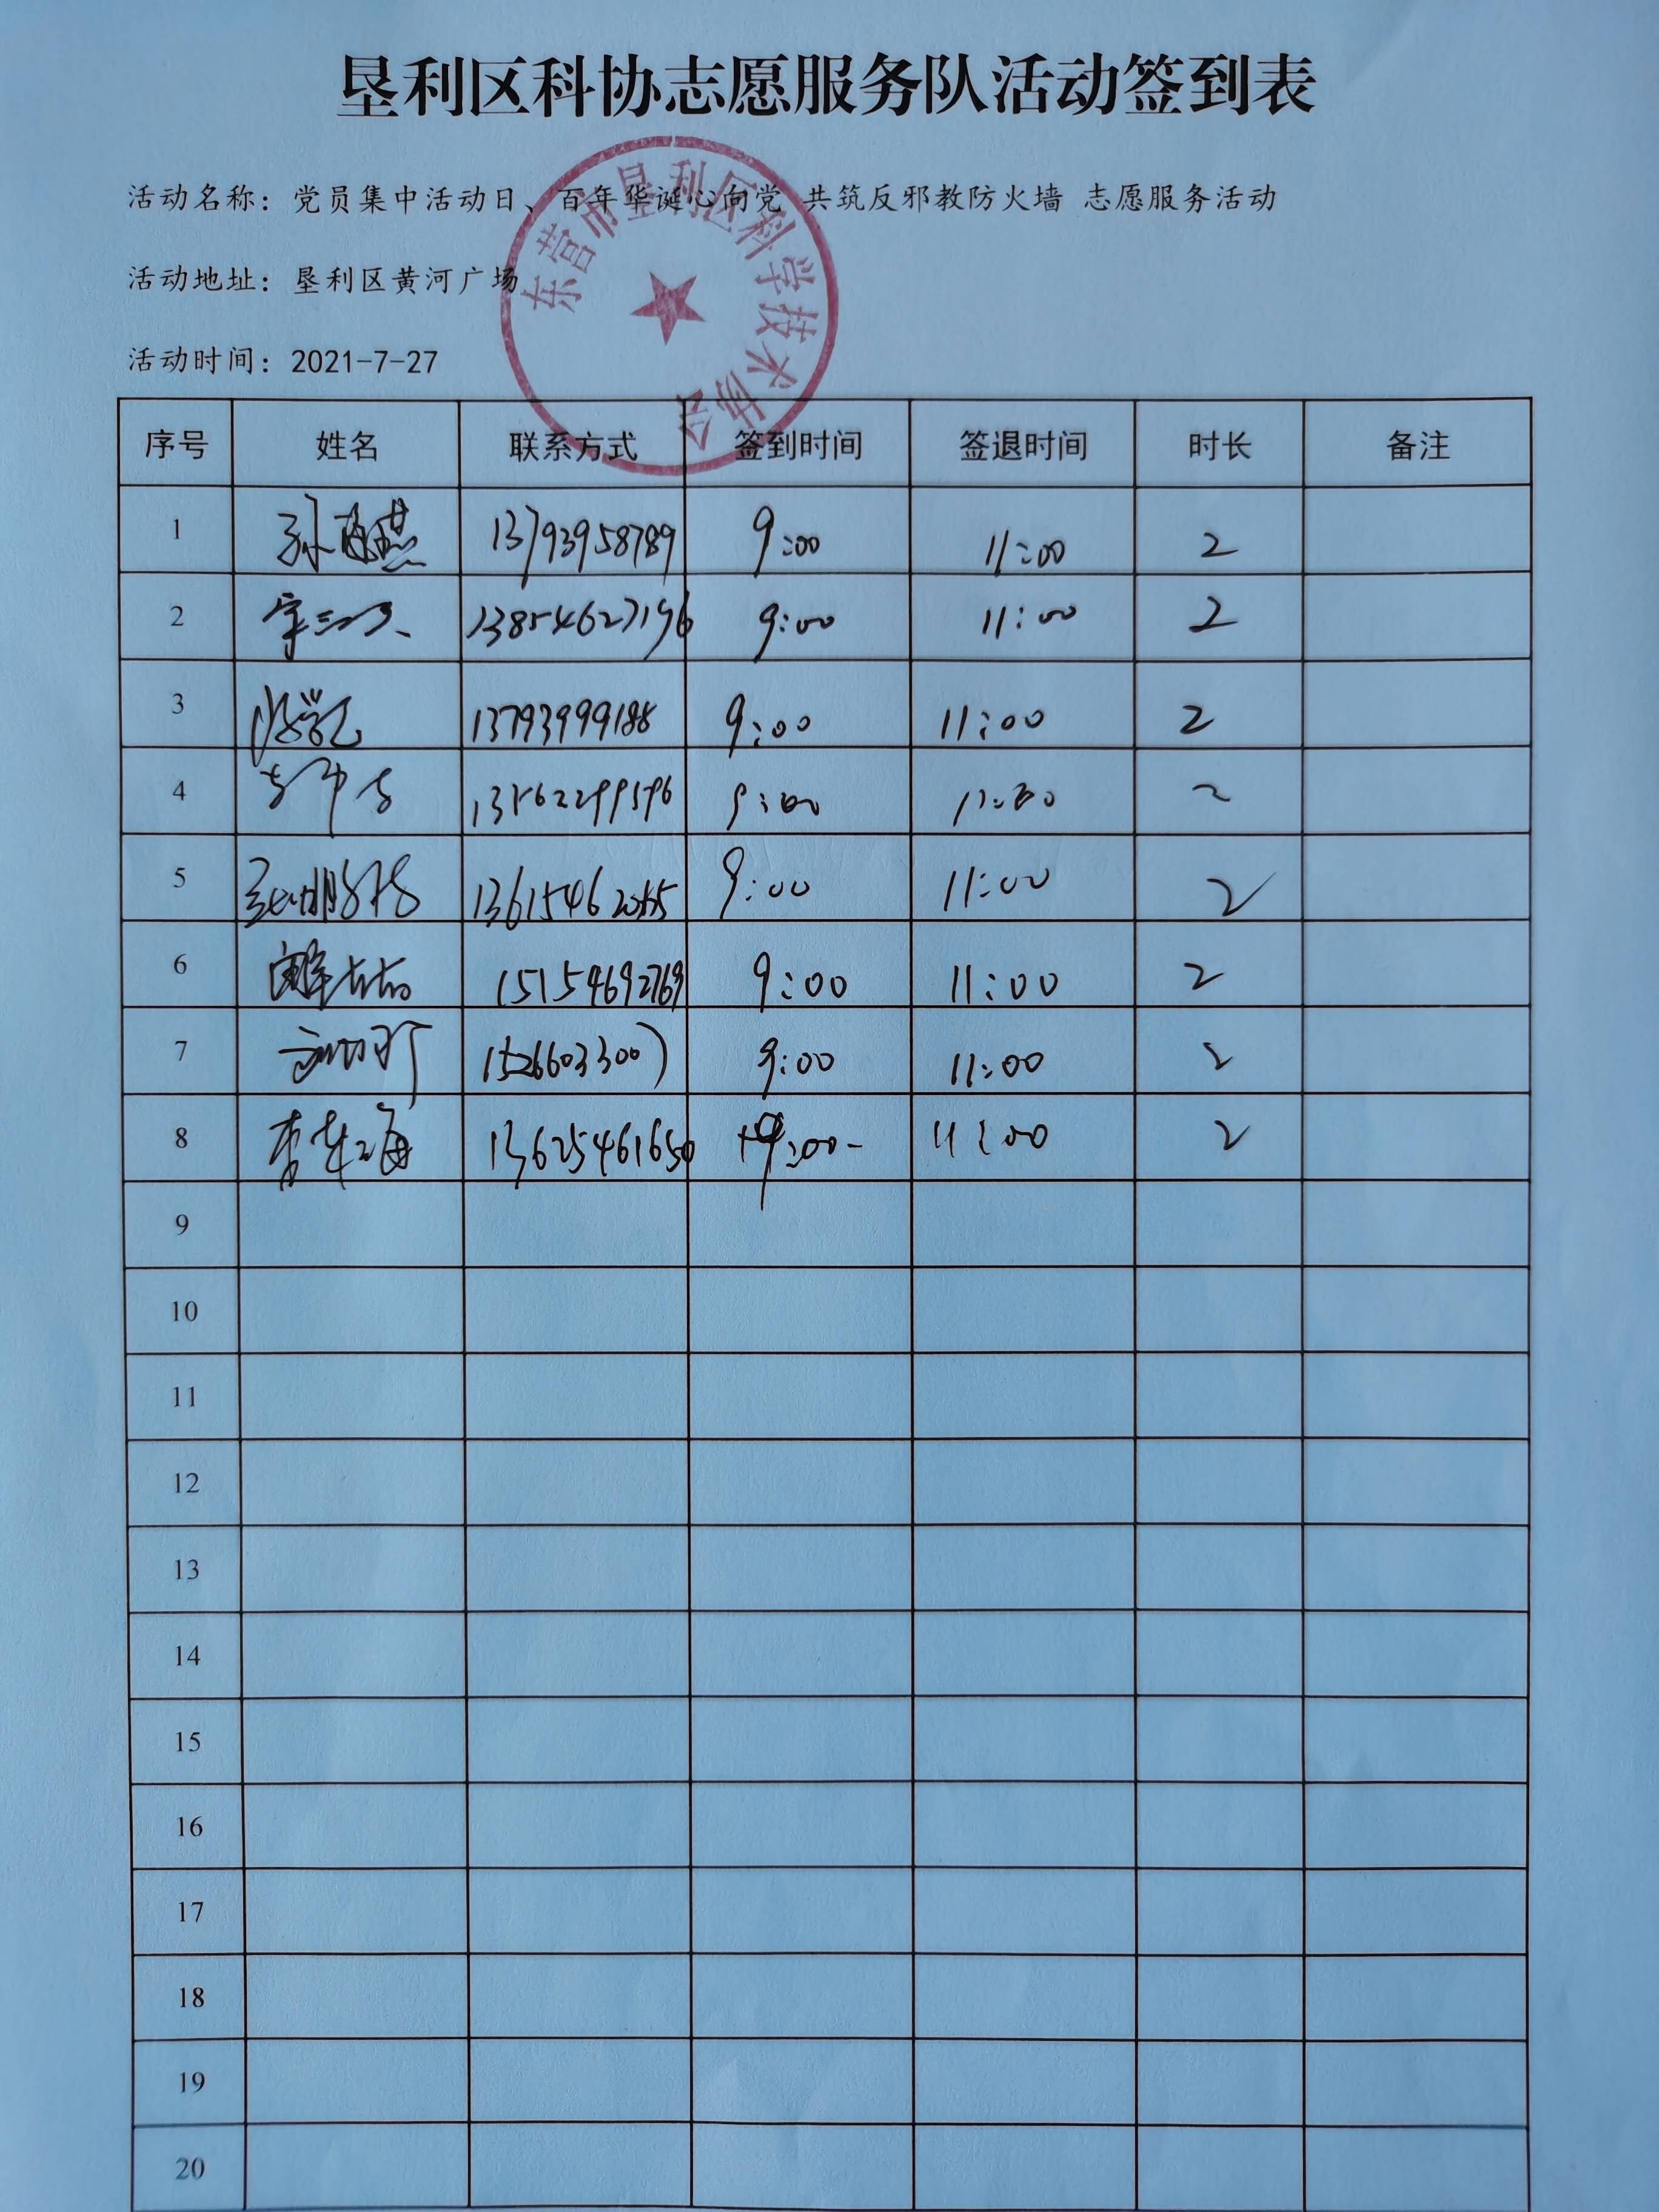 垦利区科协志愿服务队活动签到表
活动名称：党员集中活动日、百年华诞心向党 共筑反邪教防火墙 志愿服务活动
活动地址：垦利区黄河广场
活动时间：2021-7-27
东营市垦利区科学技术协会
序号 姓名 联系方式 签到时间 签退时间 时长 备注
1 13793958789 9:00 11:00 2
2 13854627196 9:00 11:00 2
3 13793999188 9:00 11:00 2
4 9:00 11:00 2
5 9:00 11:00 2
6 15154692769 9:00 11:00 2
7 15266033007 9:00 11:00 2
8 李东海 13625461650 9:00 11:00 2
9
10
11
12
13
14
15
16
17
18
19
20